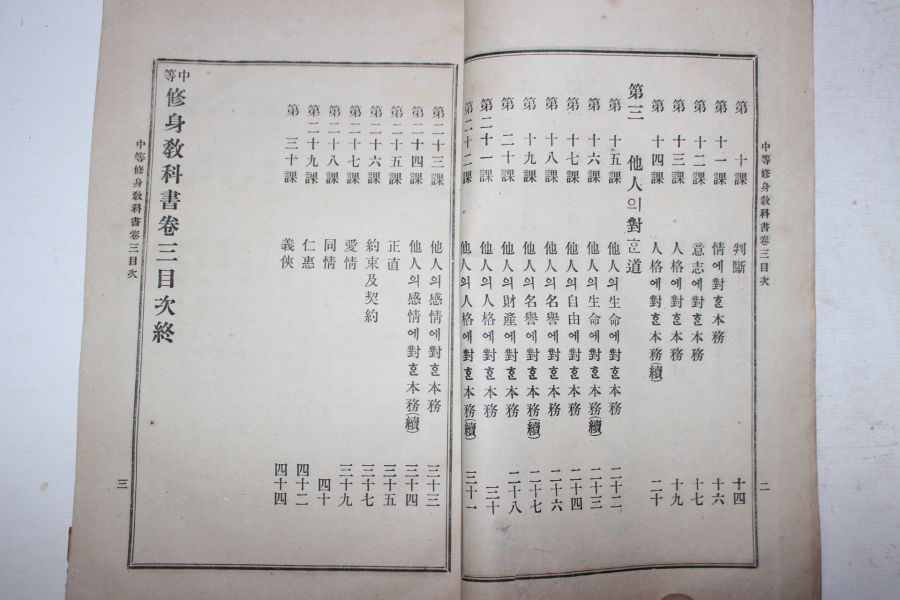 中等修身教科書卷三目次
二
第十課 判斷 十四
第十一課 情에對ᄒᆞᆫ本務 十六
第十二課 意志에對ᄒᆞᆫ本務 十七
第十三課 人格에對ᄒᆞᆫ本務 十九
第十四課 人格에對ᄒᆞᆫ本務(續) 二十
第三 他人의對ᄒᆞᆫ道
第十五課 他人의生命에對ᄒᆞᆫ本務 二十二
第十六課 他人의生命에對ᄒᆞᆫ本務(續) 二十三
第十七課 他人의自由에對ᄒᆞᆫ本務 二十四
第十八課 他人의名譽에對ᄒᆞᆫ本務 二十六
第十九課 他人의名譽에對ᄒᆞᆫ本務(續) 二十七
第二十課 他人의財產에對ᄒᆞᆫ本務 二十八
第二十一課 他人의人格에對ᄒᆞᆫ本務 三十
第二十二課 他人의人格에對ᄒᆞᆫ本務(續) 三十一
第二十三課 他人의感情에對ᄒᆞᆫ本務 三十三
第二十四課 他人의感情에對ᄒᆞᆫ本務(續) 三十四
第二十五課 正直 三十五
第二十六課 約束及契約 三十七
第二十七課 愛情 三十九
第二十八課 同情 四十
第二十九課 仁惠 四十二
第三十課 義俠 四十四
中等修身教科書卷三目次終
中等修身教科書卷三目次
三